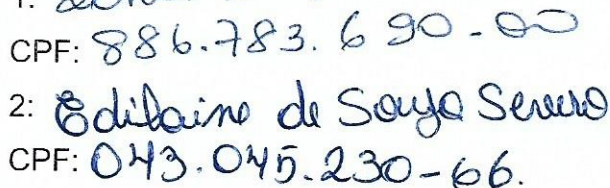 1:
CPF: 886.783.690-00
2: Edilaine de Souza Severo
CPF: 043.045.230-66.